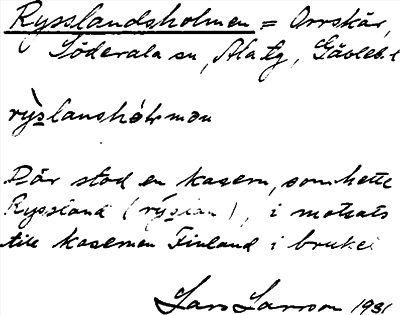 Rysslandsholmen = Orrskär,
Söderala sn, Ala tg, Gävleb. l
rỳslanshólmən
Där stod en kasern, som hette
Ryssland (rýslan), i motsats
till kasernen Finland i bruket
Lars Larsson 1931